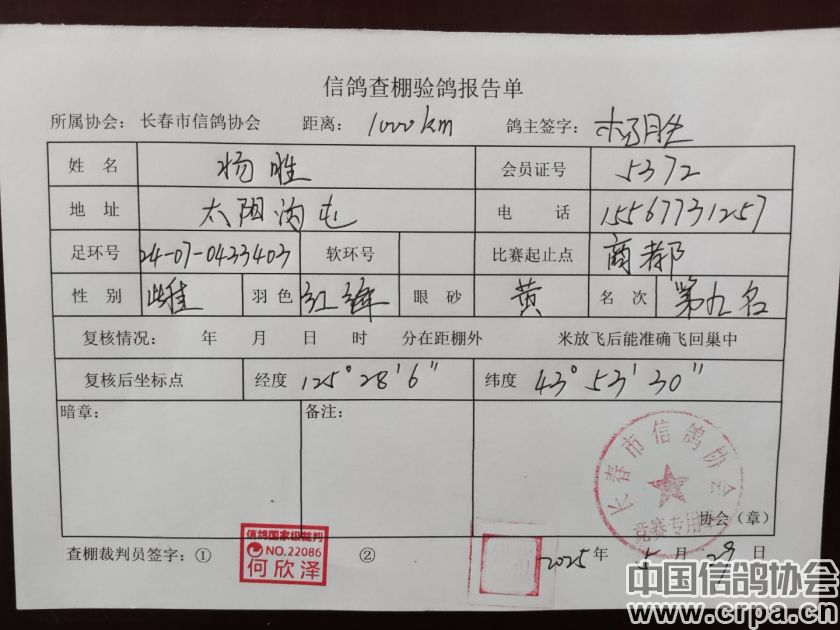 信鸽查棚验鸽报告单
所属协会: 长春市信鸽协会 距离: 1000km 鸽主签字: 杨胜
姓名 杨胜 会员证号 5372
地址 太阳沟屯 电话 15567731257
足环号 24-07-0433403 软环号 比赛起止点 商都
性别 雌 羽色 红绛 眼砂 黄 名次 第九名
复核情况: 年 月 日 时 分在距棚外 米放飞后能准确飞回巢中
复核后坐标点 经度 125°28'6" 纬度 43°53'30"
暗章: 备注:
长春市信鸽协会
竞赛专用章
协会（章）
查棚裁判员签字: ① ② 2025年 5月 29日
信鸽国家级裁判
NO.22086
何欣泽
中国信鸽协会
www.crpa.cn